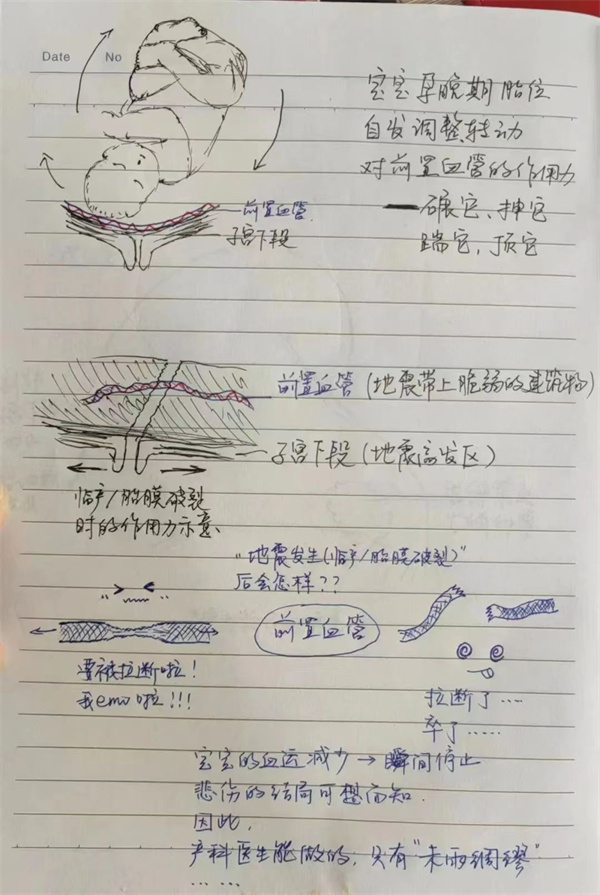 Date No
宝宝孕晚期胎位
自发调整转动
对前置血管的作用力
—碾它、抻它
踹它、顶它
前置血管
子宫下段
前置血管(地震带上脆弱的建筑物)
子宫下段(地震高发区)
临产/胎膜破裂
时的作用力示意
"地震发生(临产/胎膜破裂)"
后会怎样??
前置血管
要被拉断啦!
我emo啦!!!
拉断了....
卒了.....
宝宝的血运减少→瞬间停止
悲伤的结局可想而知.
因此,
产科医生能做的,只有"未雨绸缪"
......